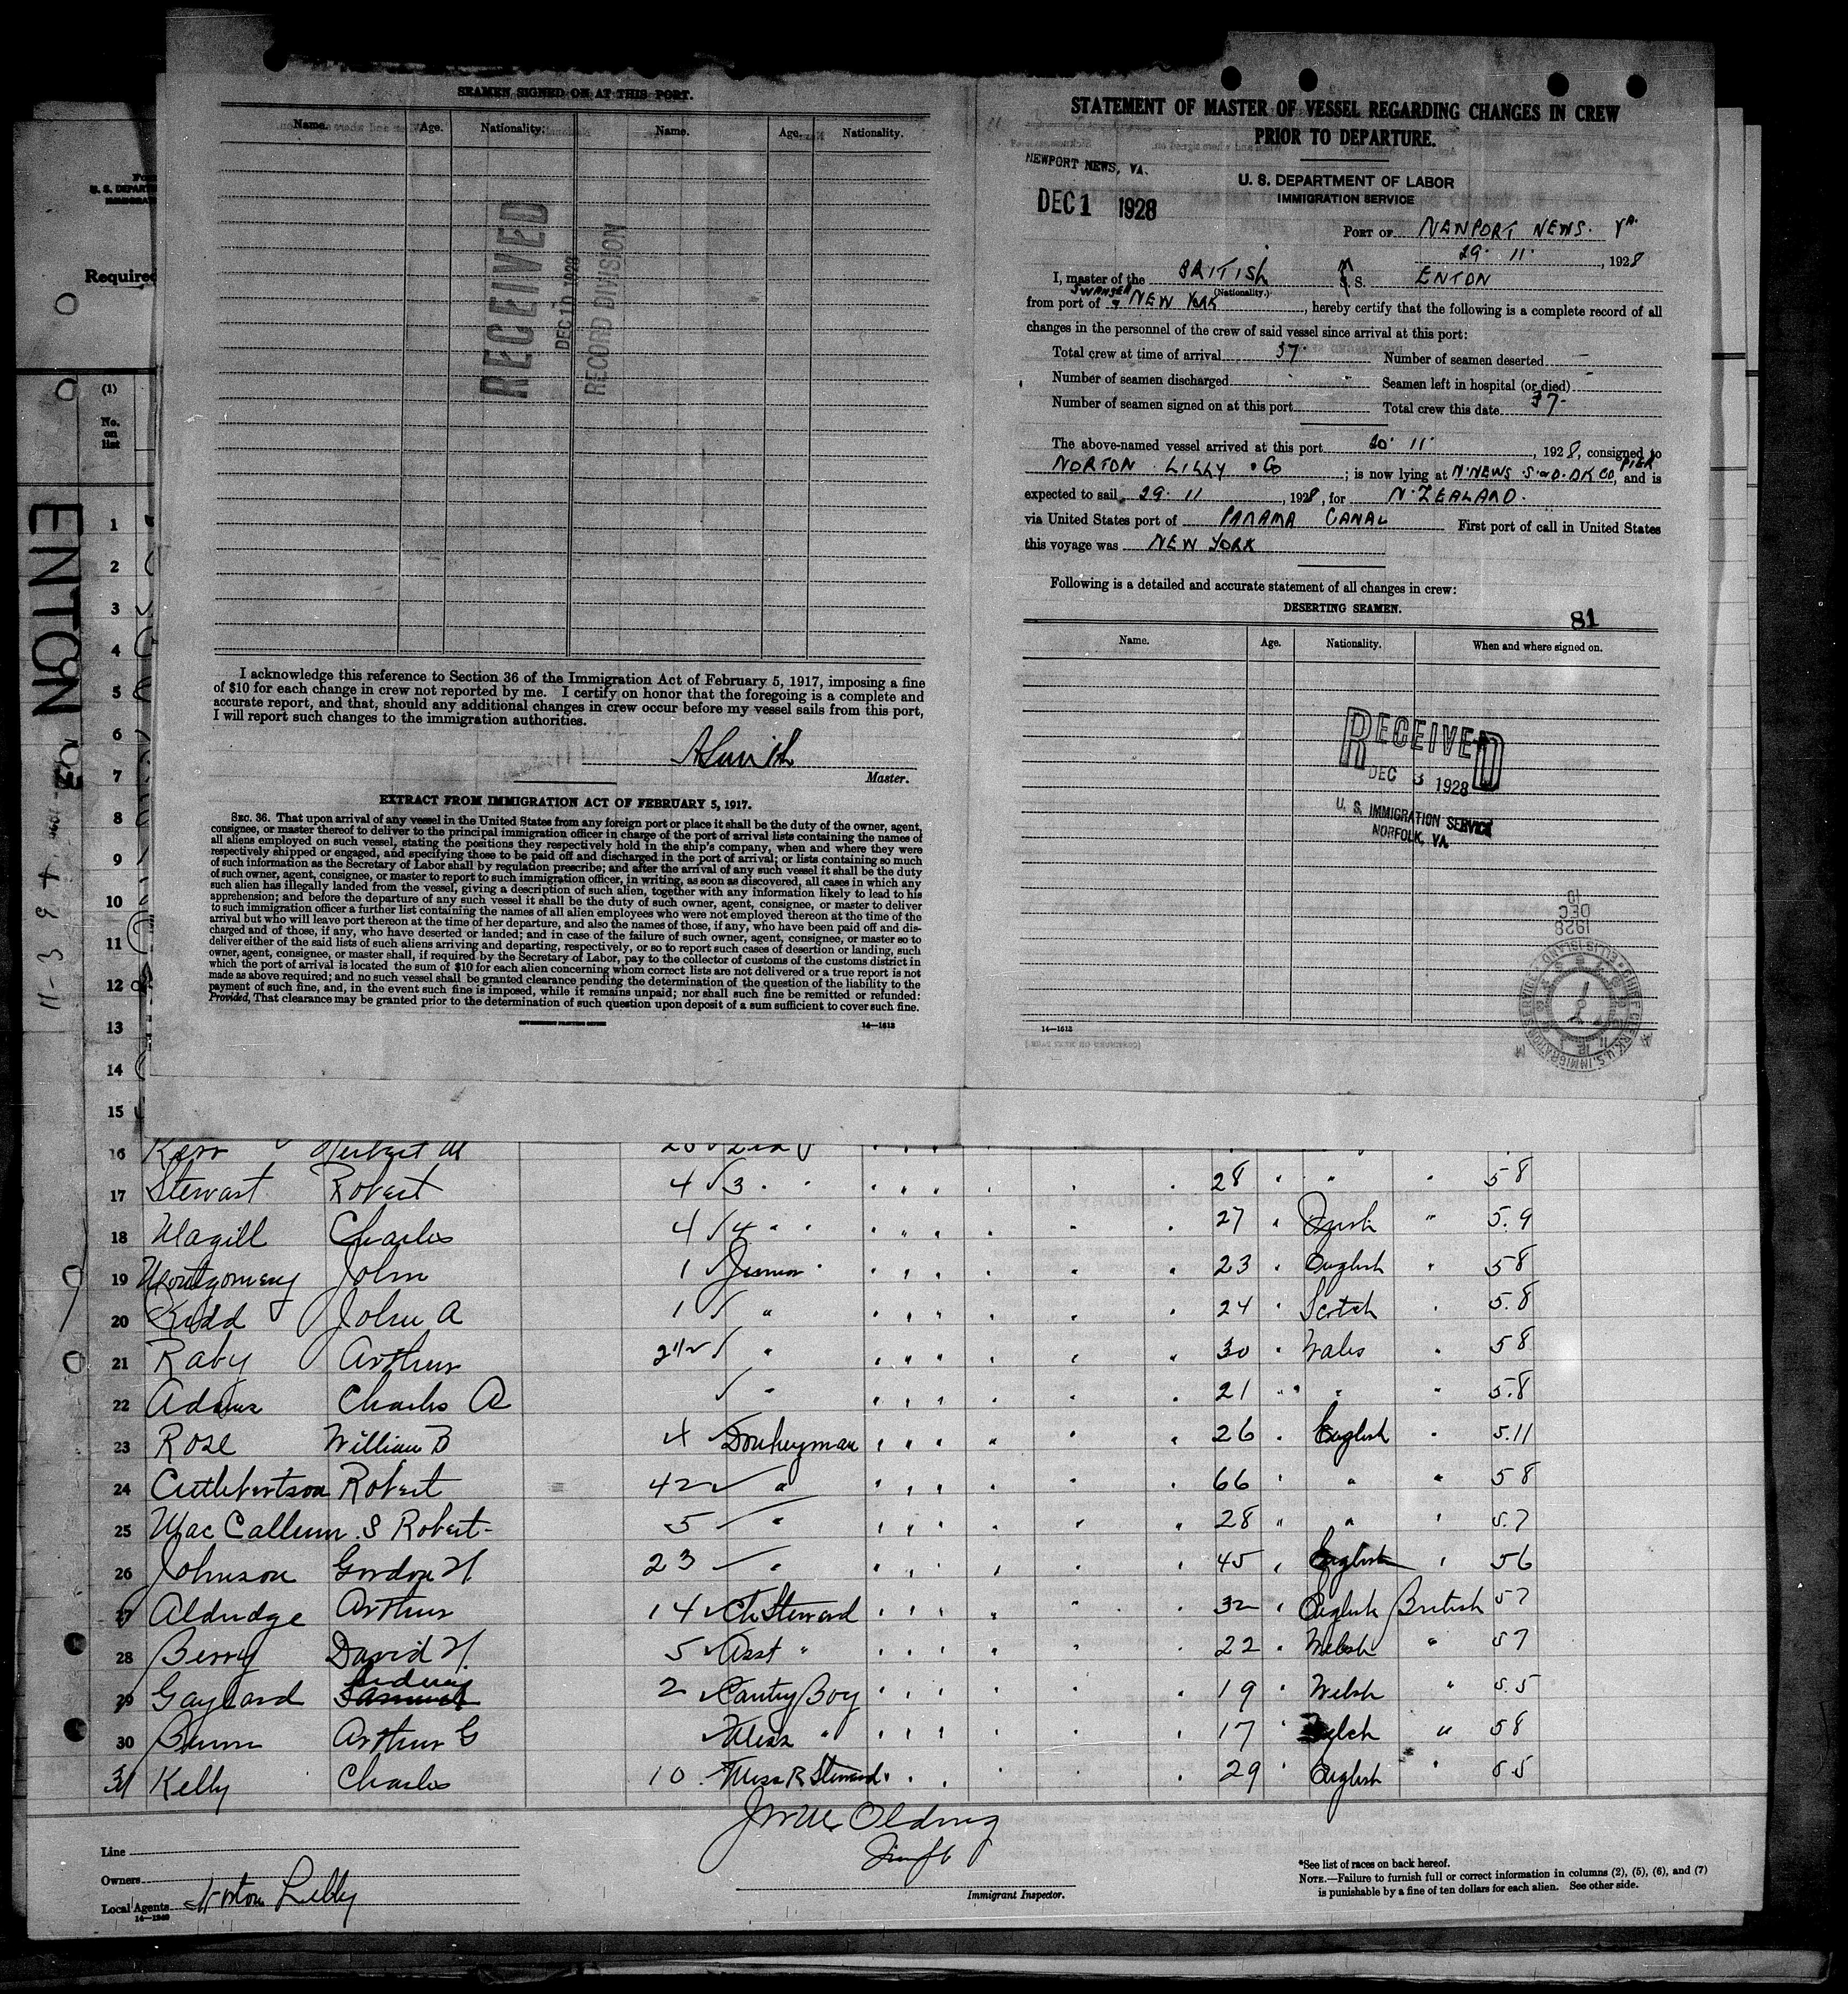 SEAMEN SIGNED ON AT THIS PORT.
Name. Age. Nationality. Name. Age. Nationality.
RECEIVED
DEC 10 1928
RECORD DIVISION
I acknowledge this reference to Section 36 of the Immigration Act of February 5, 1917, imposing a fine
of $10 for each change in crew not reported by me. I certify on honor that the foregoing is a complete and
accurate report, and that, should any additional changes in crew occur before my vessel sails from this port,
I will report such changes to the immigration authorities.
Master.
EXTRACT FROM IMMIGRATION ACT OF FEBRUARY 5, 1917.
SEC. 36. That upon arrival of any vessel in the United States from any foreign port or place it shall be the duty of the owner, agent,
consignee, or master thereof to deliver to the principal immigration officer in charge of the port of arrival lists containing the names of
all aliens employed on such vessel, stating the positions they respectively hold in the ship's company, when and where they were
respectively shipped or engaged, and specifying those to be paid off and discharged in the port of arrival; or lists containing so much
of such information as the Secretary of Labor shall by regulation prescribe; and after the arrival of any such vessel it shall be the duty
of such owner, agent, consignee, or master to report to such immigration officer, in writing, as soon as discovered, all cases in which any
such alien has illegally landed from the vessel, giving a description of such alien, together with any information likely to lead to his
apprehension; and before the departure of any such vessel it shall be the duty of such owner, agent, consignee, or master to deliver
to such immigration officer a further list containing the names of all alien employees who were not employed thereon at the time of the
arrival but who will leave port thereon at the time of her departure, and also the names of those, if any, who have been paid off and dis-
charged and of those, if any, who have deserted or landed; and in case of the failure of such owner, agent, consignee, or master so to
deliver either of the said lists of such aliens arriving and departing, respectively, or so to report such cases of desertion or landing, such
owner, agent, consignee, or master shall, if required by the Secretary of Labor, pay to the collector of customs of the customs district in
which the port of arrival is located the sum of $10 for each alien concerning whom correct lists are not delivered or a true report is not
made as above required; and no such vessel shall be granted clearance pending the determination of the question of the liability to the
payment of such fine, and, in the event such fine is imposed, while it remains unpaid; nor shall such fine be remitted or refunded:
Provided, That clearance may be granted prior to the determination of such question upon deposit of a sum sufficient to cover such fine.
GOVERNMENT PRINTING OFFICE 14—1613
STATEMENT OF MASTER OF VESSEL REGARDING CHANGES IN CREW
PRIOR TO DEPARTURE.
NEWPORT NEWS, VA.
DEC 1 1928
U. S. DEPARTMENT OF LABOR
IMMIGRATION SERVICE
PORT OF NEWPORT NEWS. VA.
29. 11. , 1928
I, master of the BRITISH S. S. ENTON
(Nationality.)
from port of SWANSEA & NEW YORK, hereby certify that the following is a complete record of all
changes in the personnel of the crew of said vessel since arrival at this port:
Total crew at time of arrival 37. Number of seamen deserted —
Number of seamen discharged - Seamen left in hospital (or died) -
Number of seamen signed on at this port Total crew this date 37-
The above-named vessel arrived at this port 20. 11. , 1928, consigned to
NORTON LILLY & Co ; is now lying at N.NEWS S & D. DK CO PIER, and is
expected to sail 29. 11 , 1928, for N. ZEALAND.
via United States port of PANAMA CANAL First port of call in United States
this voyage was NEW YORK
Following is a detailed and accurate statement of all changes in crew:
DESERTING SEAMEN.
81
Name. Age. Nationality. When and where signed on.
RECEIVED
DEC 3 1928
U. S. IMMIGRATION SERVICE
NORFOLK, VA.
1928
DEC
10
CHIEF CLERK U.S. IMMIGRATION SERVICE ELLIS ISLAND
14—1613
U. S. DEPART
Required
(1)
No.
on
list
ENTON
1
2
3
4
5
6
7
8
9
10
11
12
13
14
15
16 Kerr Herbert M
17 Stewart Robert 4 3 " " 28 " " " 5 8
18 Magill Charles 4 4 " " 27 " Irish " 5.9
19 Montgomery John 1 Junior 23 " English " 5 8
20 Kidd John A 1 " 24 " Scotch " 5.8
21 Raby Arthur 2 1/2 " 30 " Wales " 5 8
22 Adams Charles A " 21 " " " 5.8
23 Rose William B 4 Donkeyman 26 " English " 5.11
24 Cuthbertson Robert 42 " 66 " " " 5 8
25 MacCallum S Robert 5 " 28 " " " 5.7
26 Johnson Gordon H. 23 " 45 " English " 5 6
27 Aldridge Arthur 14 Ch Steward 32 " English British 5 7
28 Berry David H. 5 Asst " 22 " Welsh " 5 7
29 Gaylard 2 Pantry Boy 19 " Welsh " 5.5
30 Bunn Arthur G Mess " 17 " " 5 8
31 Kelly Charles 10 Mess R Steward 29 " English " 5 5
Line
Owners
Local Agents Norton Lilly
14—1240
Immigrant Inspector.
*See list of races on back hereof.
NOTE.—Failure to furnish full or correct information in columns (2), (5), (6), and (7)
is punishable by a fine of ten dollars for each alien. See other side.